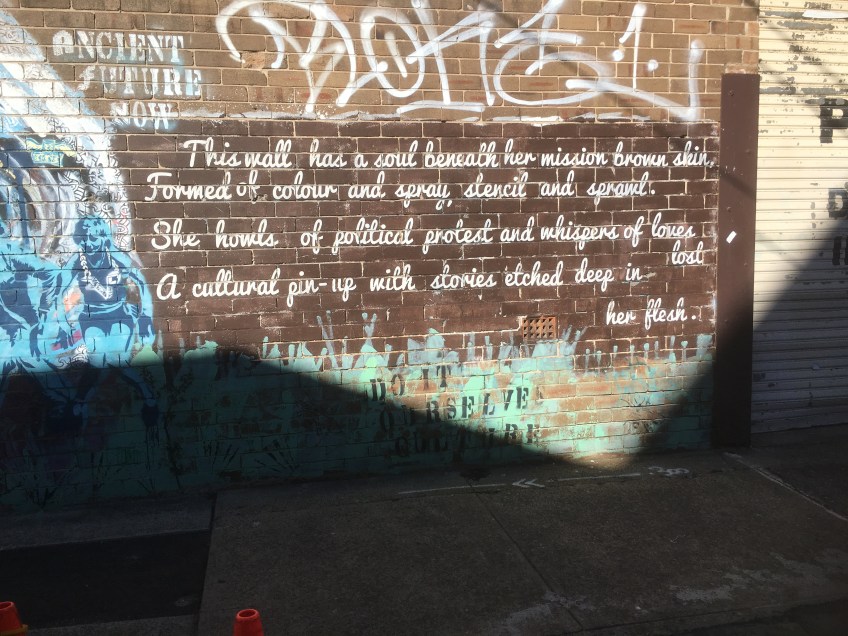 ANCIENT
FUTURE
NOW
This wall has a soul beneath her mission brown skin,
Formed of colour and spray, stencil and sprawl.
She howls of political protest and whispers of loves
lost
A cultural pin-up with stories etched deep in
her flesh.
DO IT
OURSELVES
CULTURE
P